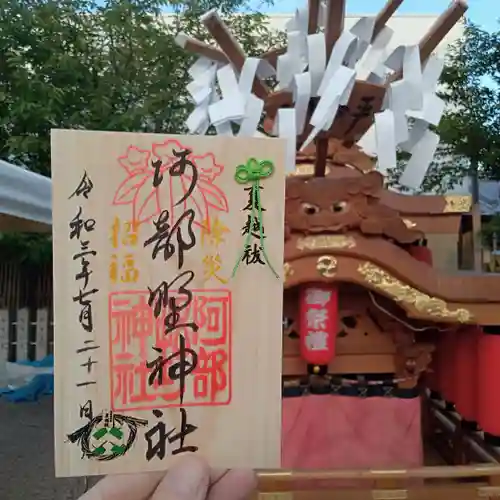 夏越祓
除災
阿部野神社
招福
阿部野神社
令和三年七月二十一日
御祭